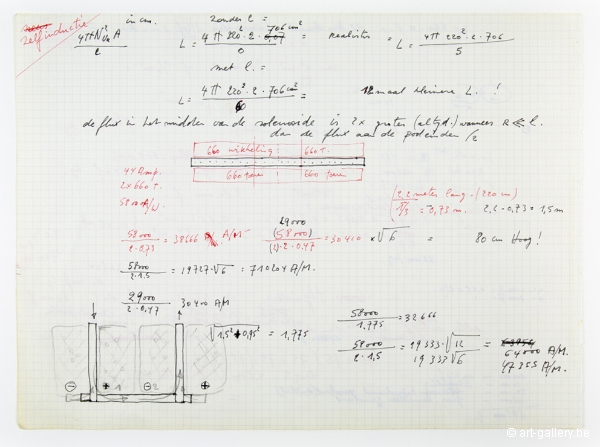 zelfinductie
in cm.
4πN² A
l
zonder l =
L = 4π 220² · 2 · 706 cm²
0
= realistis =
L = 4π 220² · 2 · 706
5
met l. =
L = 4π 220² · 2 · 706 cm²
12 maal kleinere L. !
de flux in het midden van de solenoide is 2x groter (altijd.) wanneer R ≪ l.
dan de flux aan de /2
660 wikkeling : 660 t.
660 toeren 660 toeren
44 Amp.
2 x 660 t.
58000 A/W.
(2.2 meter lang. (220 cm)
= 0,73 m. 2,2 - 0,73 = 1,5 m
58000
2 · 0,73
= 38666 A/M
29000
(58000)
(1) · 2 · 0,47
= 30400 x √6 = 80 cm Hoog !
58000
2 · 1,5
= 19727 · √6 = 71020 A/M.
29000
2 · 0,47
30400 A/M
√1,5² + 0,95² = 1,775
58000
1,775
= 32666
58000
2 · 1,5
= 19333 · √12 =
19333 √6
64000 A/M.
47355 A/M.
⊖ + 1 ⊖ 2 ⊕
© art-gallery.be